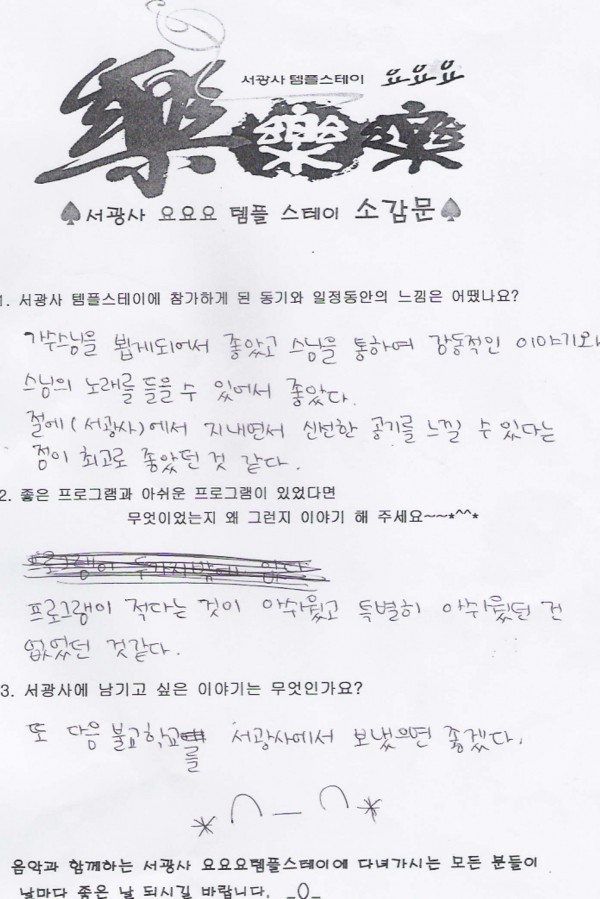 서광사 템플스테이 요요요
樂 樂 樂
♠서광사 요요요 템플 스테이 소감문♠
1. 서광사 템플스테이에 참가하게 된 동기와 일정동안의 느낌은 어땠나요?
가수스님을 뵙게되어서 좋았고 스님을 통하여 감동적인 이야기와
스님의 노래를 들을 수 있어서 좋았다.
절에(서광사)에서 지내면서 신선한 공기를 느낄 수 있다는
점이 최고로 좋았던 것 같다.
2. 좋은 프로그램과 아쉬운 프로그램이 있었다면
무엇이었는지 왜 그런지 이야기 해 주세요~~*^^*
프로그램이 적다는 것이 아쉬웠고 특별히 아쉬웠던 건
없었던 것같다.
3. 서광사에 남기고 싶은 이야기는 무엇인가요?
또 다음 불교학교를 서광사에서 보냈으면 좋겠다.
*∩_∩*
음악과 함께하는 서광사 요요요템플스테이에 다녀가시는 모든 분들이
날마다 좋은 날 되시길 바랍니다. _()_